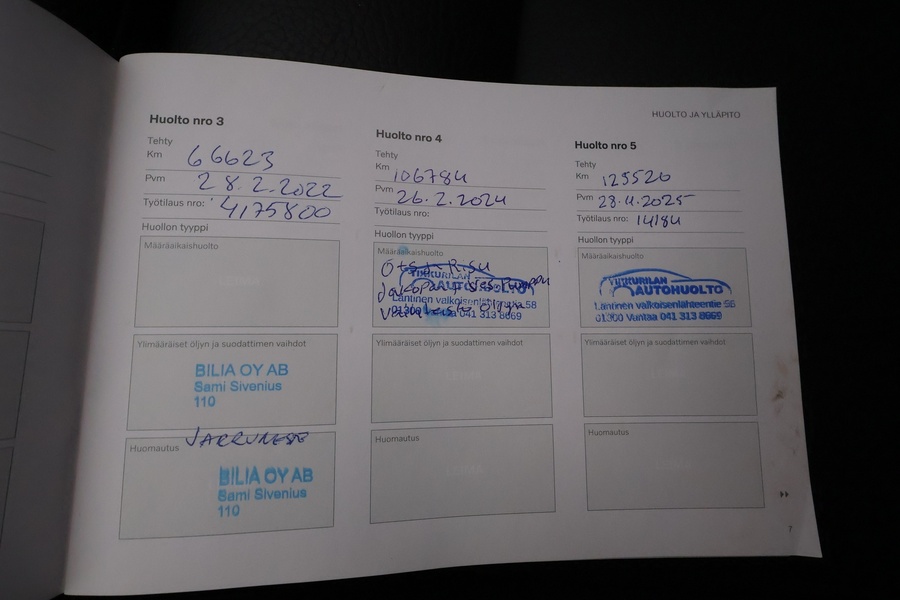 HUOLTO JA YLLÄPITO
Huolto nro 3
Tehty
Km 66623
Pvm 28.2.2022
Työtilaus nro: 4175800
Huollon tyyppi
Määräaikaishuolto
Ylimääräiset öljyn ja suodattimen vaihdot
BILIA OY AB
Sami Sivenius
110
Huomautus JARRUNESTE
BILIA OY AB
Sami Sivenius
110
Huolto nro 4
Tehty
Km 106784
Pvm 26.2.2024
Työtilaus nro:
Huollon tyyppi
Määräaikaishuolto
TIKKURILAN
AUTOHUOLTO
Läntinen valkoisenlähteentie 58
01300 Vantaa 041 313 8669
Ylimääräiset öljyn ja suodattimen vaihdot
Huomautus
Huolto nro 5
Tehty
Km 125520
Pvm 28.11.2025
Työtilaus nro: 14184
Huollon tyyppi
Määräaikaishuolto
TIKKURILAN
AUTOHUOLTO
Läntinen valkoisenlähteentie 56
01300 Vantaa 041 313 8669
Ylimääräiset öljyn ja suodattimen vaihdot
Huomautus
7